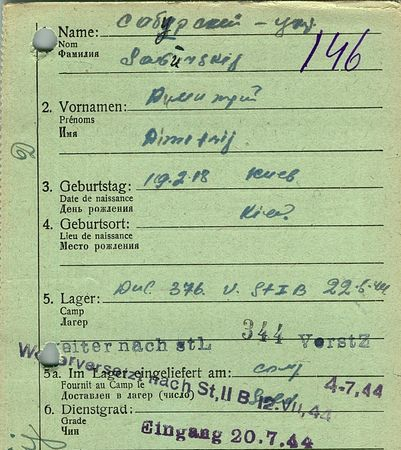 1. Name: Сабурский – укр
Nom
Фамилия
146
Saburskij
2. Vornamen: Димитрий
Prénoms
Имя
Dimitrij
3. Geburtstag: 19.2.18 Киев
Date de naissance
День рождения
Kiew.
4. Geburtsort:
Lieu de naissance
Место рождения
5. Lager: Dul. 376 v. St I B 22.6.44
Camp
Лагер
Weiter nach stL 344 VerstZ
Weiterversetz. nach St. II B 12. VII. 44
5a. In Lager eingeliefert am:
Fournit au Camp le
Доставлен в лагер (число)
4-7.44
6. Dienstgrad:
Grade
Чин
Eingang 20.7.44